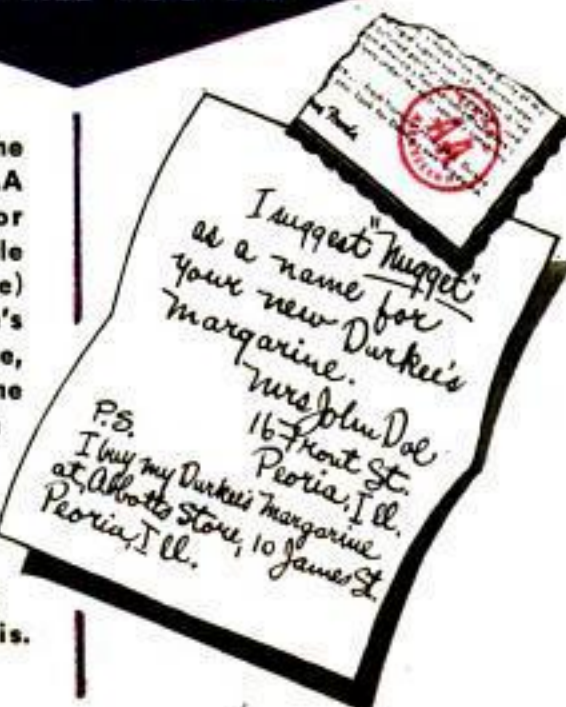 ne
A
or
le
e)
's
e,
ne
is.
AA
I suggest "Nugget"
as a name for
your new Durkee's
Margarine.
Mrs John Doe
16 Front St.
Peoria, Ill.
P.S.
I buy my Durkee's Margarine
at Abbotts Store, 10 James St.
Peoria, Ill.